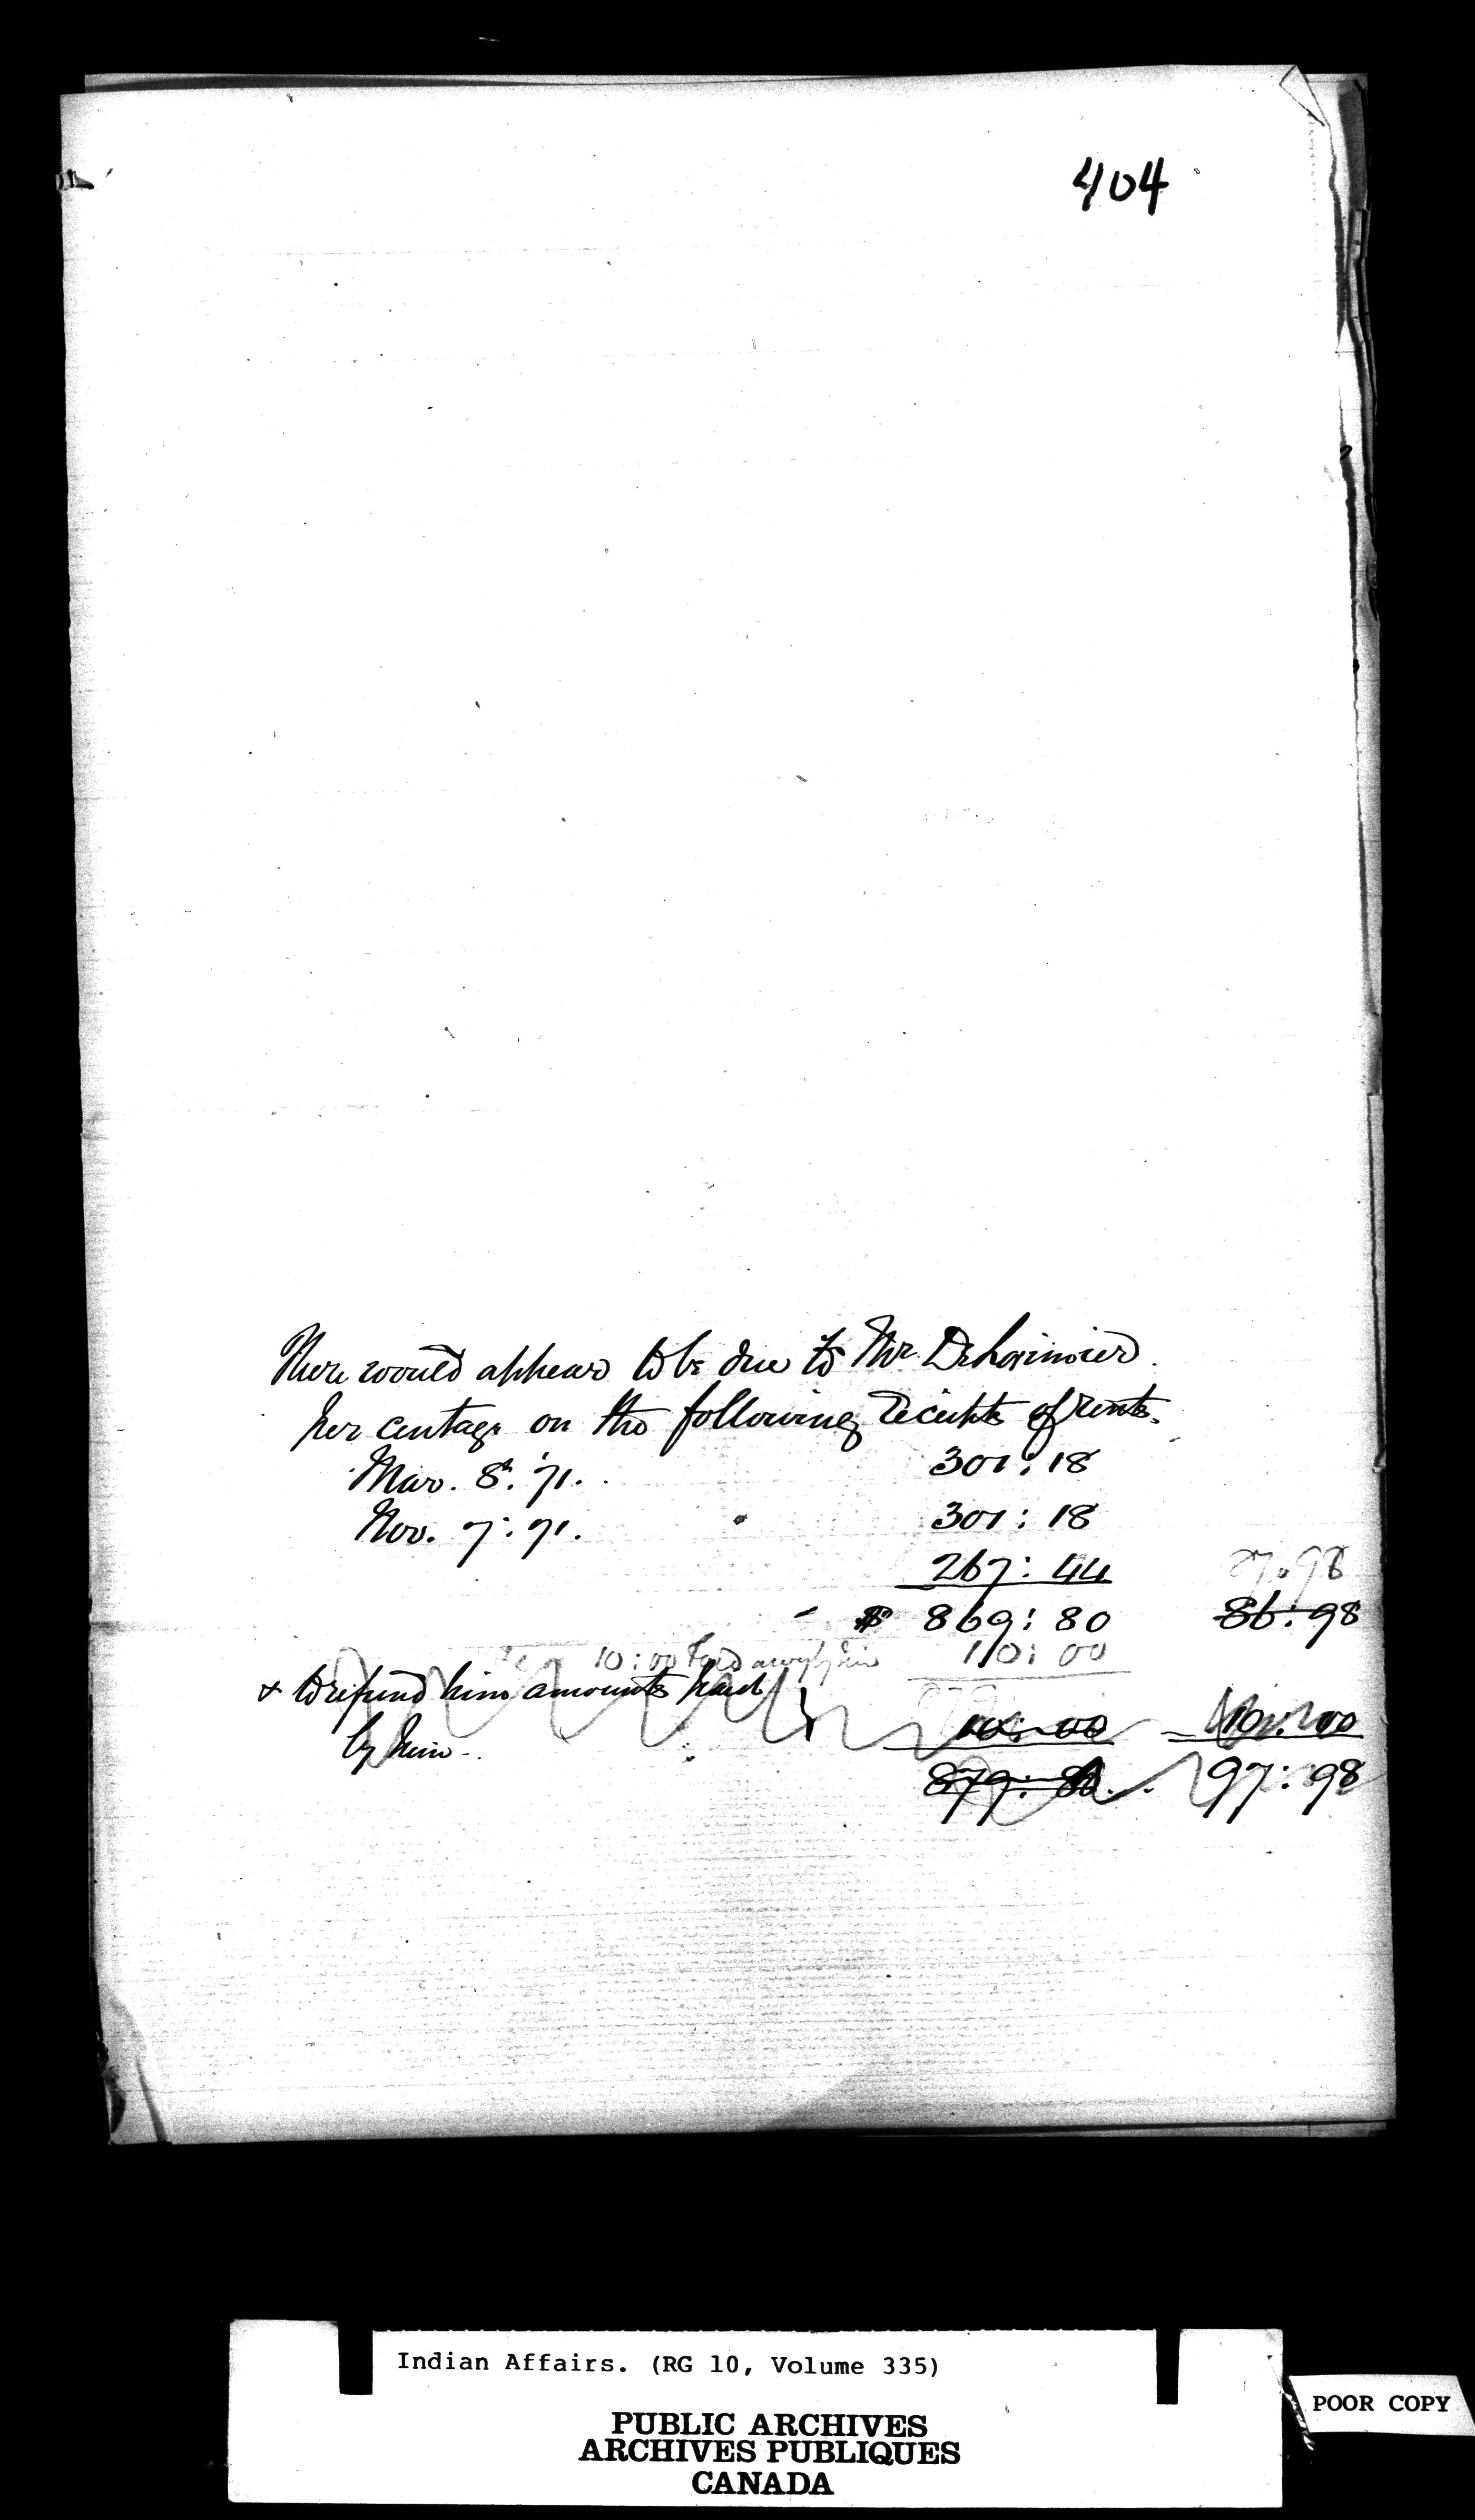 404
There would appear to be due to Mr. DeLorimier
per centage on the following receipts of rents.
Mar. 8th. '71. 301: 18
Nov. 7. '71. 301: 18
267: 44 87.98
$ 869: 80 86: 98
10:00 Paid away by him 10: 00
& to refund him amounts paid
by him 10: 00 10: 00
879: 80 97: 98
Indian Affairs. (RG 10, Volume 335)
PUBLIC ARCHIVES
ARCHIVES PUBLIQUES
CANADA
POOR COPY